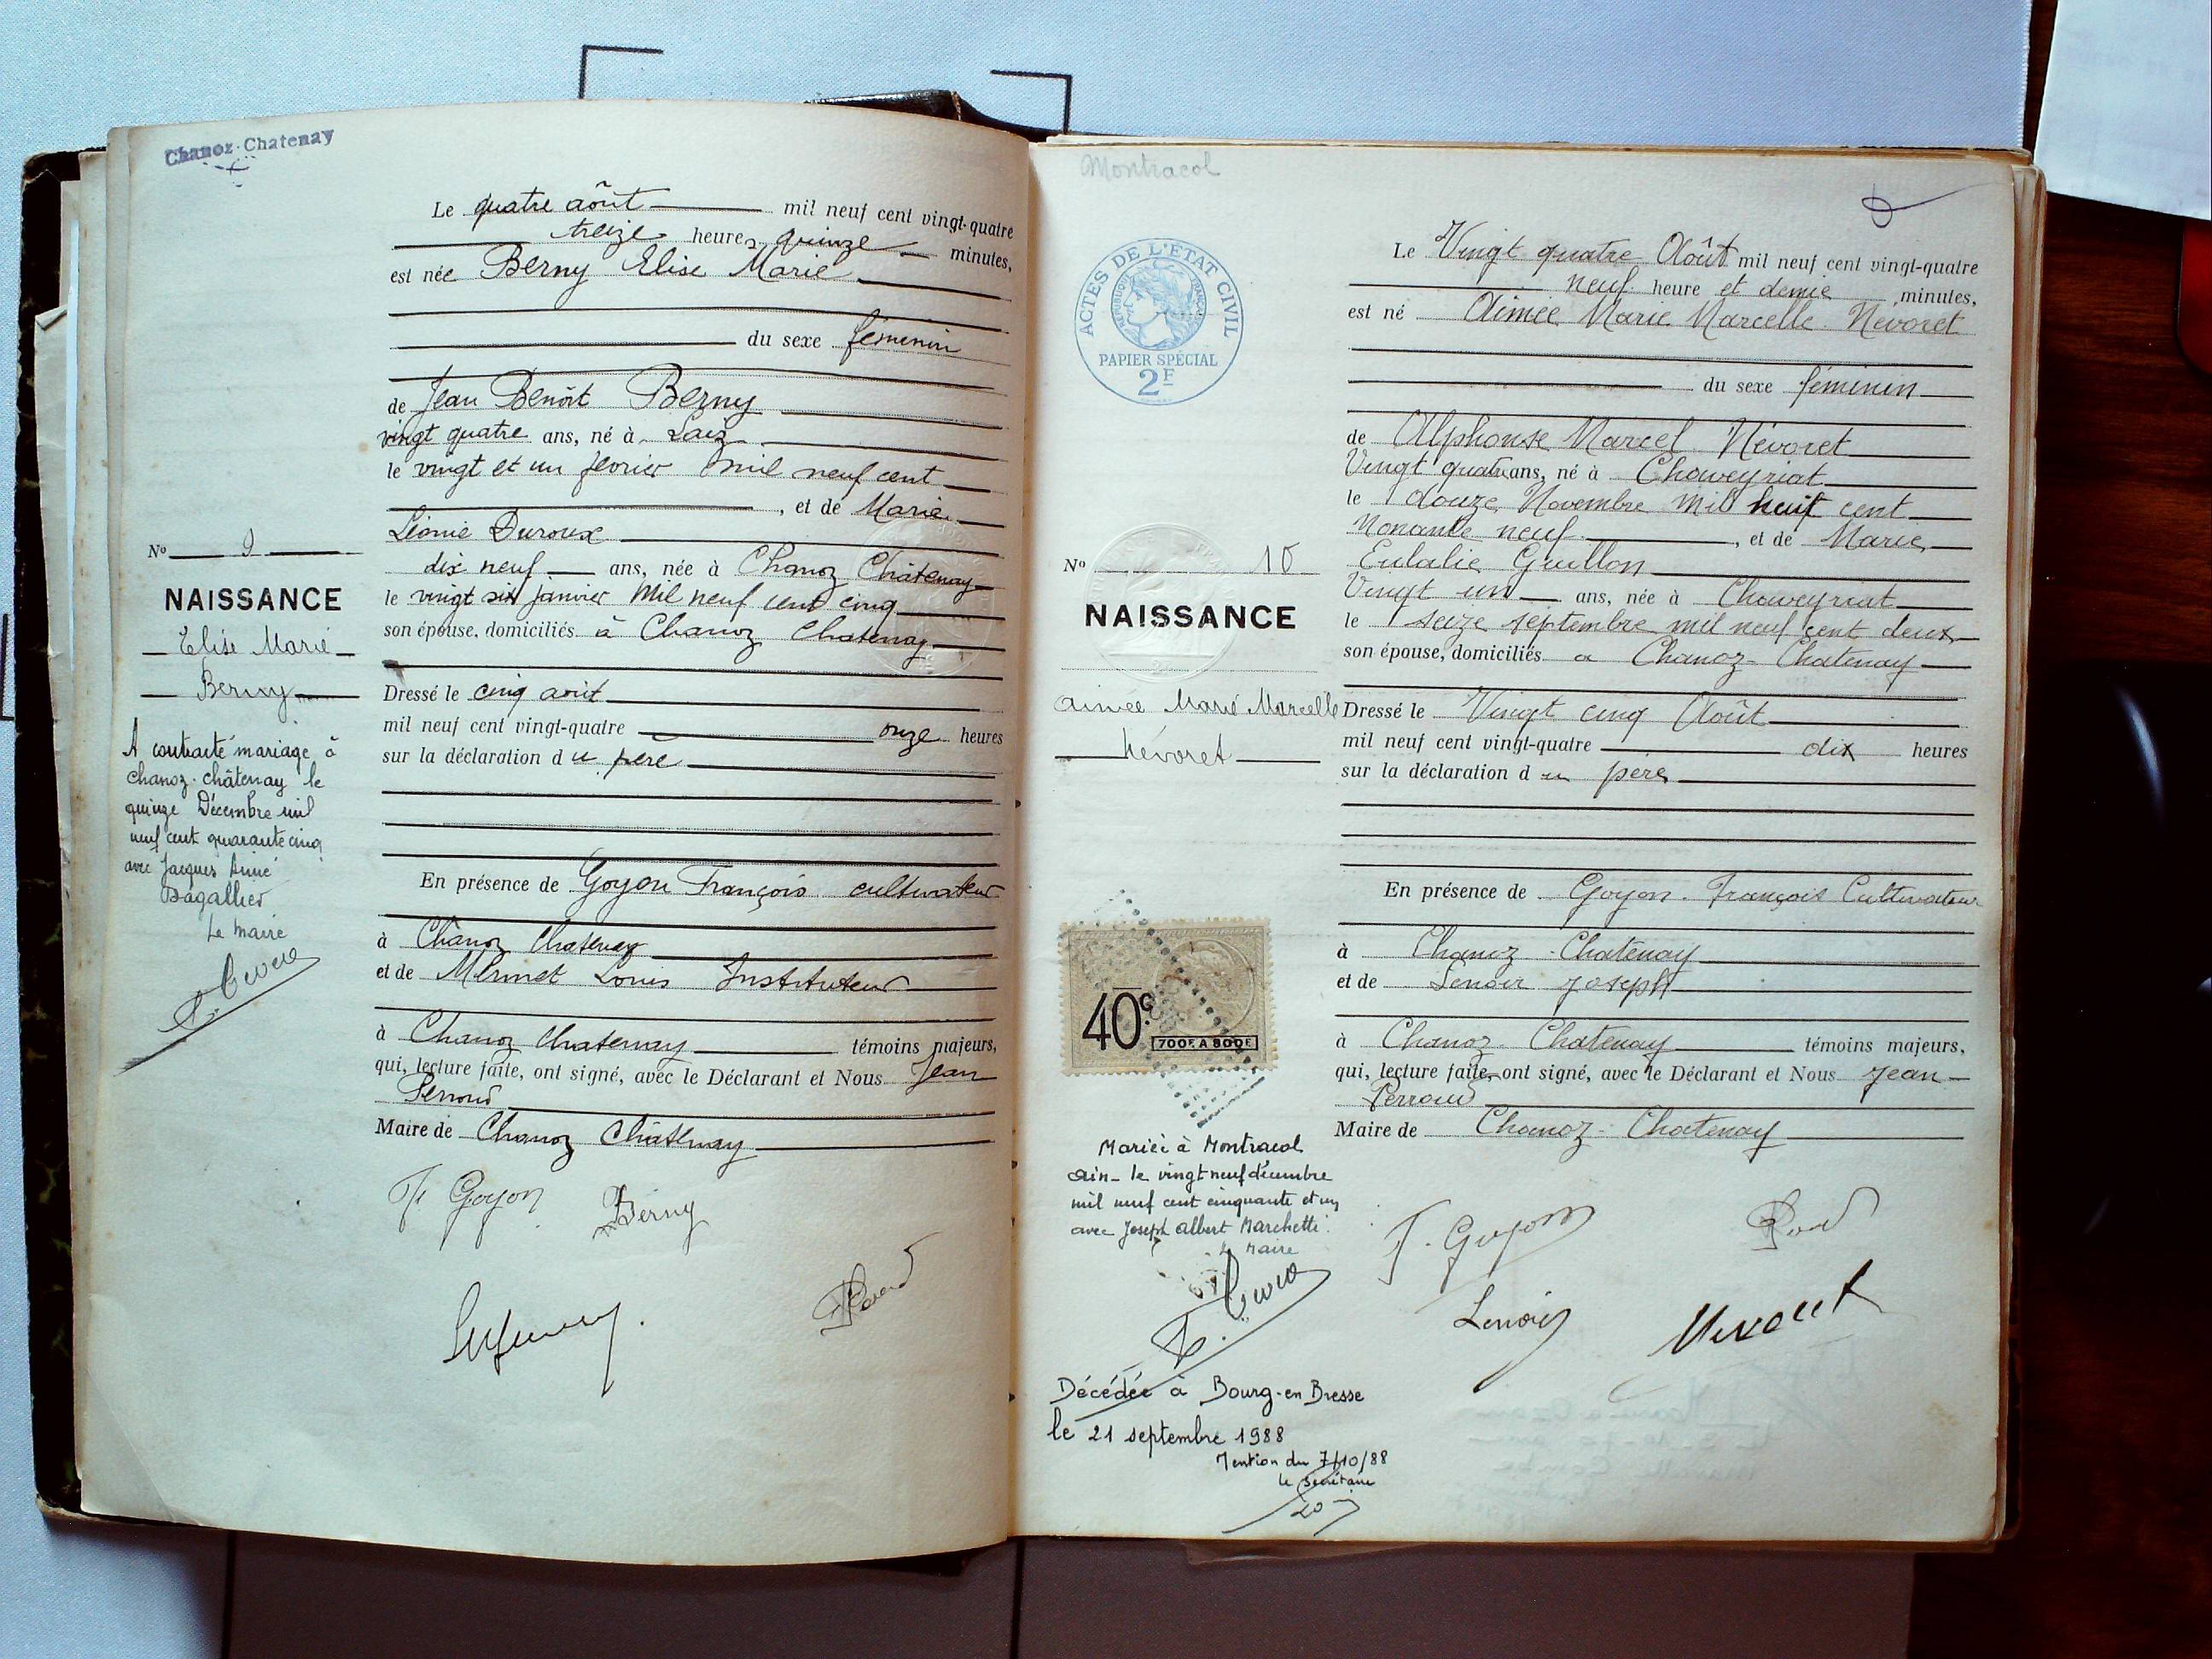 Chanoz-Chatenay
Le quatre août mil neuf cent vingt-quatre
treize heures quinze minutes,
est née Berny Elise Marie
du sexe féminin
de Jean Benoît Berny
vingt quatre ans, né à Laiz
le vingt et un février mil neuf cent
, et de Marie
Léonie Duroux
dix neuf ans, née à Chanoz Châtenay
le vingt six janvier mil neuf cent cinq
son épouse, domiciliés à Chanoz Chatenay
Dressé le cinq août
mil neuf cent vingt-quatre onze heures
sur la déclaration du père
En présence de Goyon François cultivateur
à Chanoz Chatenay
et de Mermet Louis Instituteur
à Chanoz Chatenay témoins majeurs,
qui, lecture faite, ont signé, avec le Déclarant et Nous Jean
Perroud
Maire de Chanoz Châtenay
F. Goyon Berny
No 9
NAISSANCE
Elise Marie
Berny
A contracté mariage à
Chanoz-Châtenay le
quinze Décembre mil
neuf cent quarante cinq
avec Jacques Aimé
Bagallier
Le maire
Montracol
ACTES DE L'ÉTAT CIVIL
RÉPUBLIQUE FRANÇAISE
PAPIER SPÉCIAL
2F
Le Vingt quatre Août mil neuf cent vingt-quatre
neuf heure et demie minutes,
est né Aimée Marie Marcelle Névoret
du sexe féminin
de Alphonse Marcel Névoret
Vingt quatre ans, né à Chaveyriat
le douze Novembre mil huit cent
Nonante neuf , et de Marie
Eulalie Guillon
Vingt un ans, née à Chaveyriat
le seize septembre mil neuf cent deux
son épouse, domiciliés à Chanoz-Chatenay
Dressé le Vingt cinq Août
mil neuf cent vingt-quatre dix heures
sur la déclaration du père
En présence de Goyon François Cultivateur
à Chanoz-Chatenay
et de Lenoir Joseph
à Chanoz-Chatenay témoins majeurs,
qui, lecture faite, ont signé, avec le Déclarant et Nous Jean
Perroud
Maire de Chanoz-Chatenay
F. Goyon
Lenoir Nevoret
No 10
NAISSANCE
Aimée Marie Marcelle
Névoret
40c
700F A 800F
Mariée à Montracol
Ain - le vingt neuf décembre
mil neuf cent cinquante et un
avec Joseph Albert Marchetti
Le Maire
Décédée à Bourg-en-Bresse
le 21 septembre 1988
Mention du 7/10/88
le secrétaire